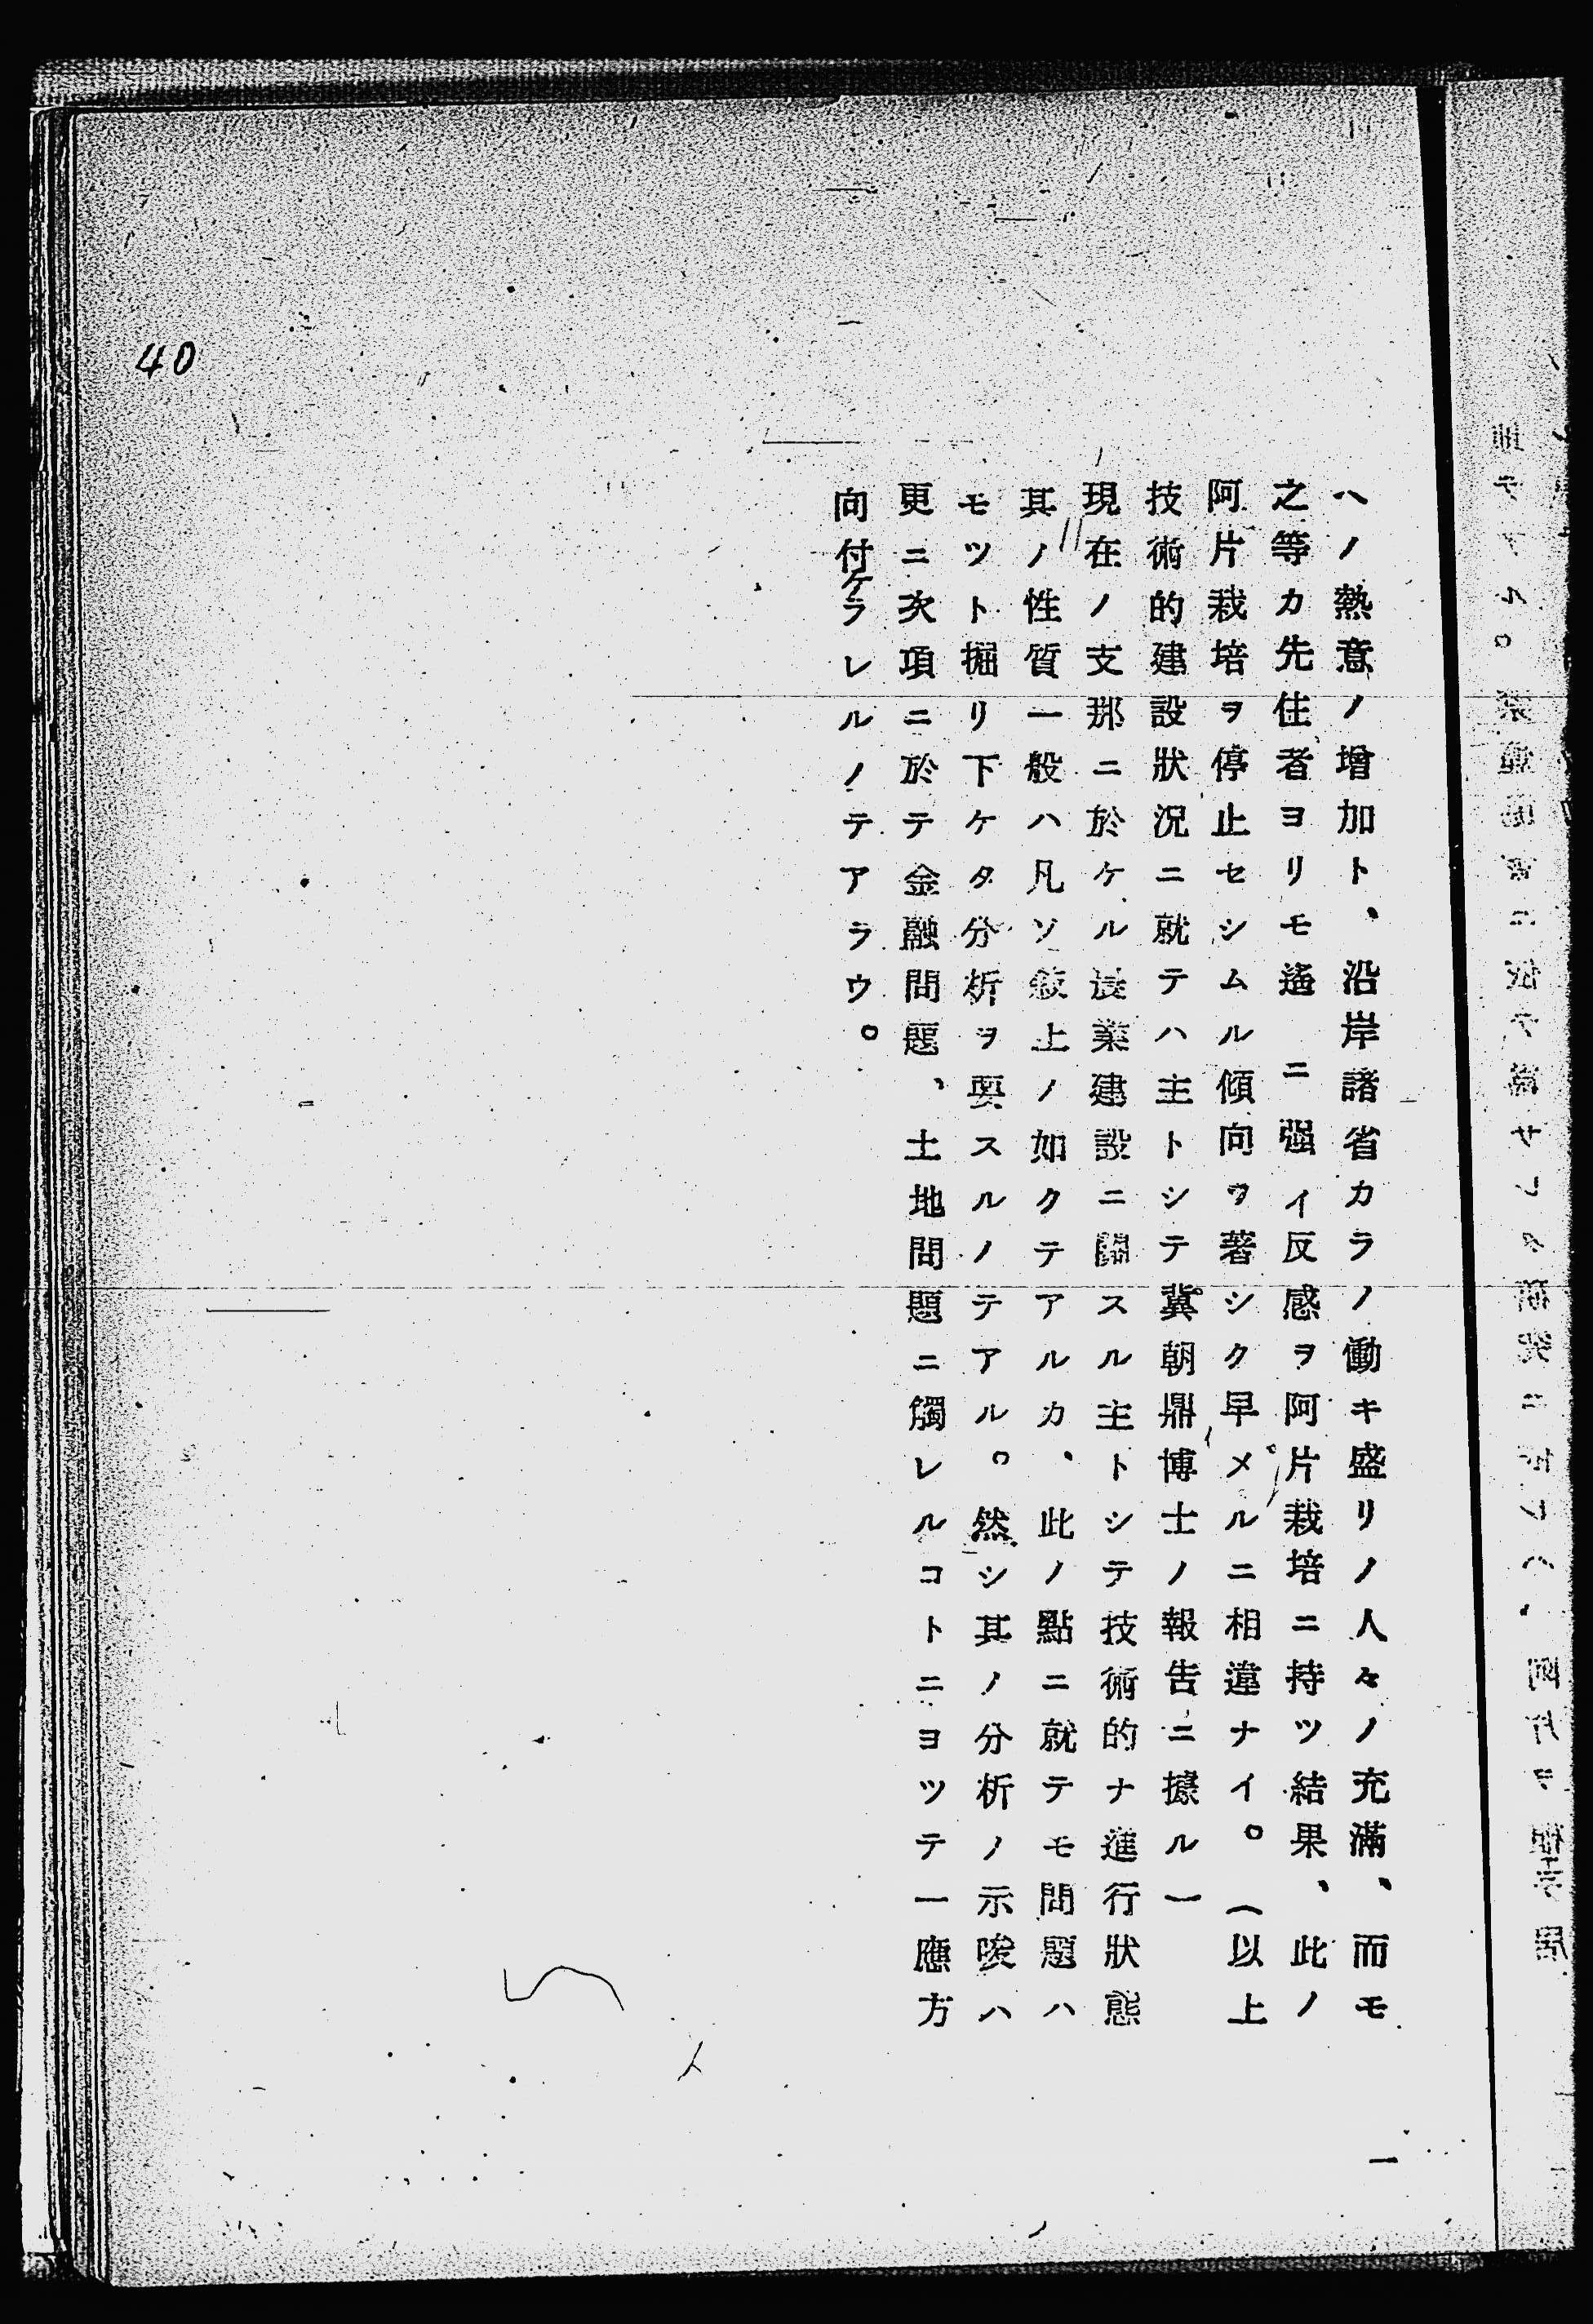 ヘノ熱意ノ增加ト、沿岸諸省カラノ働キ盛リノ人々ノ充滿、而モ
之等カ先住者ヨリモ遙ニ强イ反感ヲ阿片栽培ニ持ツ結果、此ノ
阿片栽培ヲ停止セシムル傾向ヲ著シク早メルニ相違ナイ。(以上
技術的建設狀況ニ就テハ主トシテ冀朝鼎博士ノ報告ニ據ル)
現在ノ支那ニ於ケル農業建設ニ關スル主トシテ技術的ナ進行狀態
其ノ性質一般ハ凡ソ敍上ノ如クテアルカ、此ノ點ニ就テモ問題ハ
モツト掘リ下ケタ分析ヲ要スルノテアル。然シ其ノ分析ノ示唆ハ
更ニ次項ニ於テ金融問題、土地問題ニ觸レルコトニヨツテ一應方
向付ケラレルノテアラウ。
40